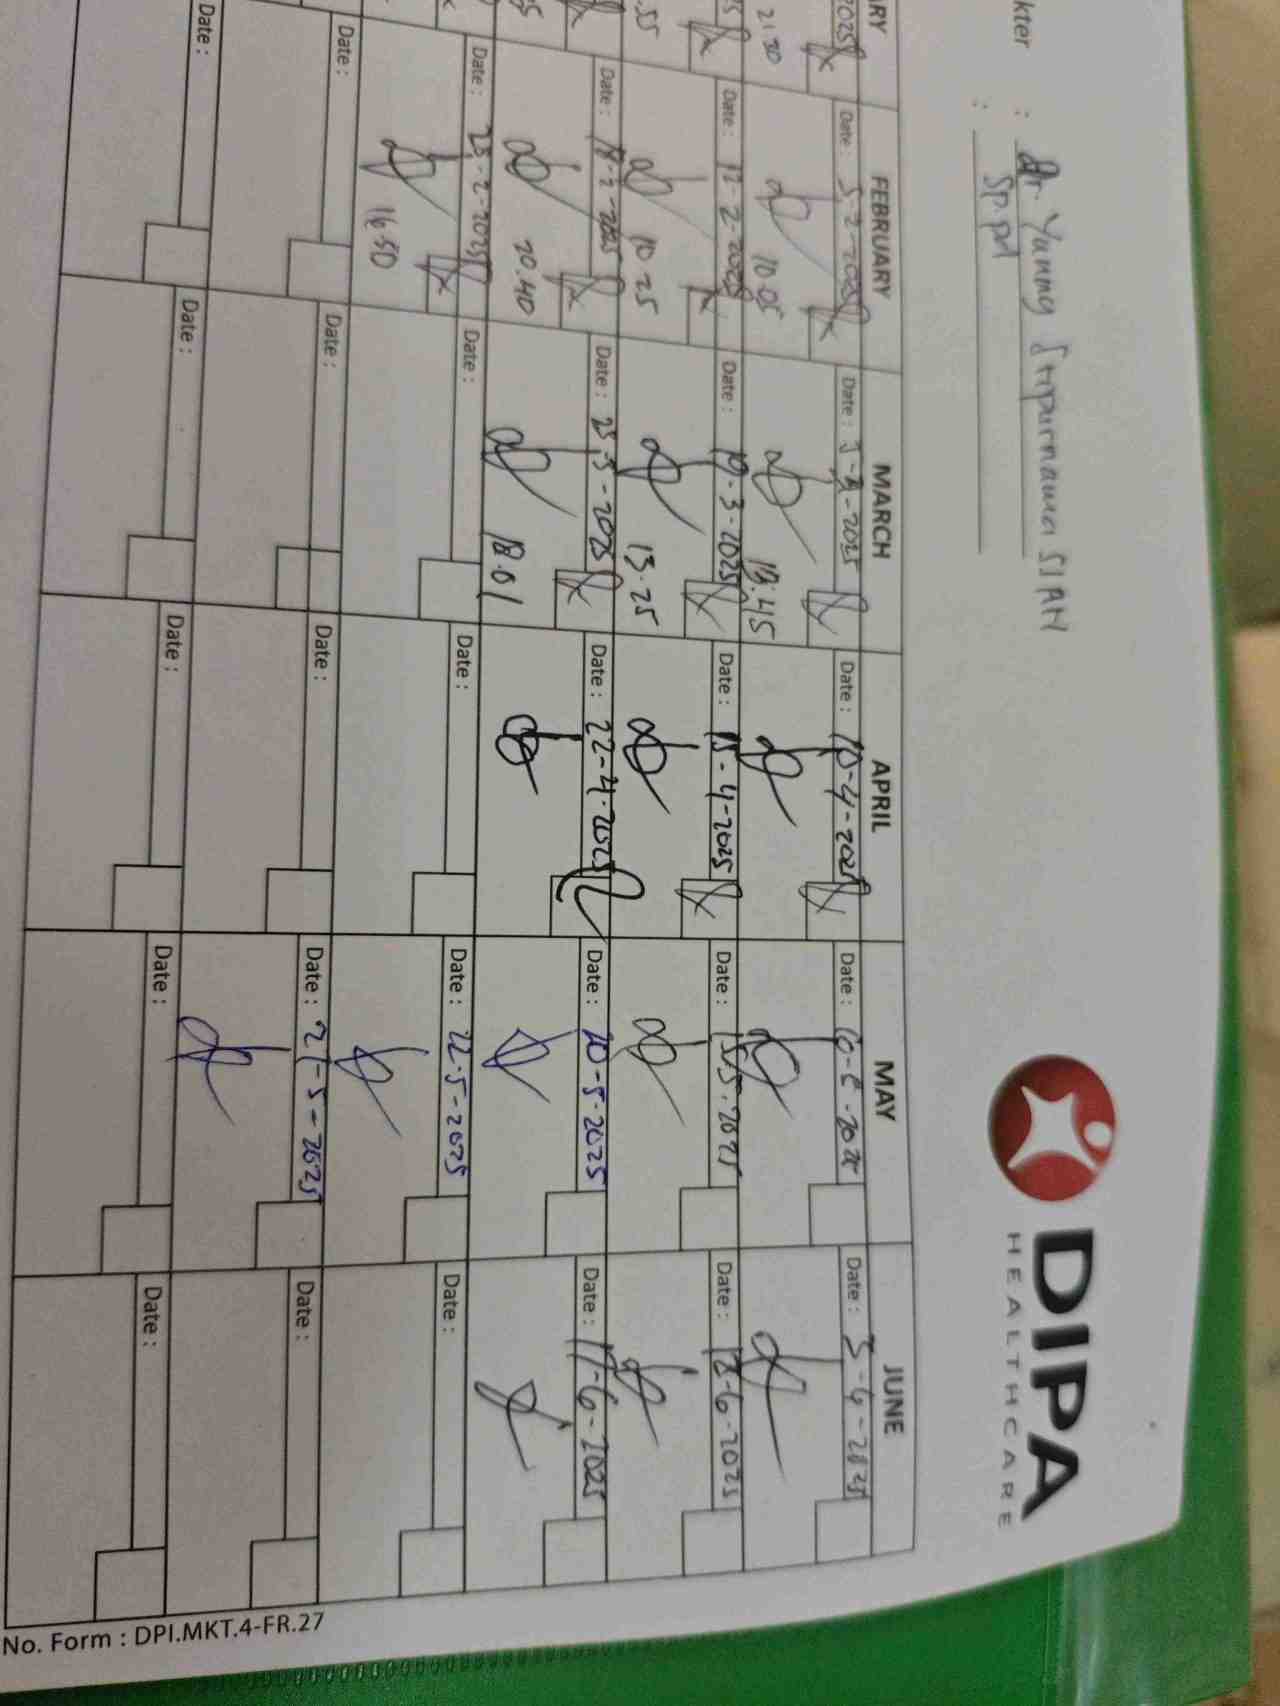 kter : dr. Yanny Tripurnama SIAN
: Sp.pd
DIPA
HEALTHCARE
ARY
FEBRUARY
MARCH
APRIL
MAY
JUNE
2025
Date : 5-2-2025
Date : 3-3-2025
Date : 10-4-2025
Date : 10-5-2025
Date :
21.30
10.05
18.45
Date : 12-2-2025
Date : 10-3-2025
Date : 15-4-2025
Date : 15-5-2025
Date : 12-6-2025
.55
10.25
13.25
Date : 18-2-2025
Date : 25-3-2025
Date : 22-4-2025
Date : 20-5-2025
Date : 17-6-2025
20.40
18.01
Date : 25-2-2025
Date :
Date :
Date : 22-5-2025
Date :
16.50
Date :
Date :
Date :
Date : 27-5-2025
Date :
Date :
Date :
Date :
Date :
Date :
No. Form : DPI.MKT.4-FR.27